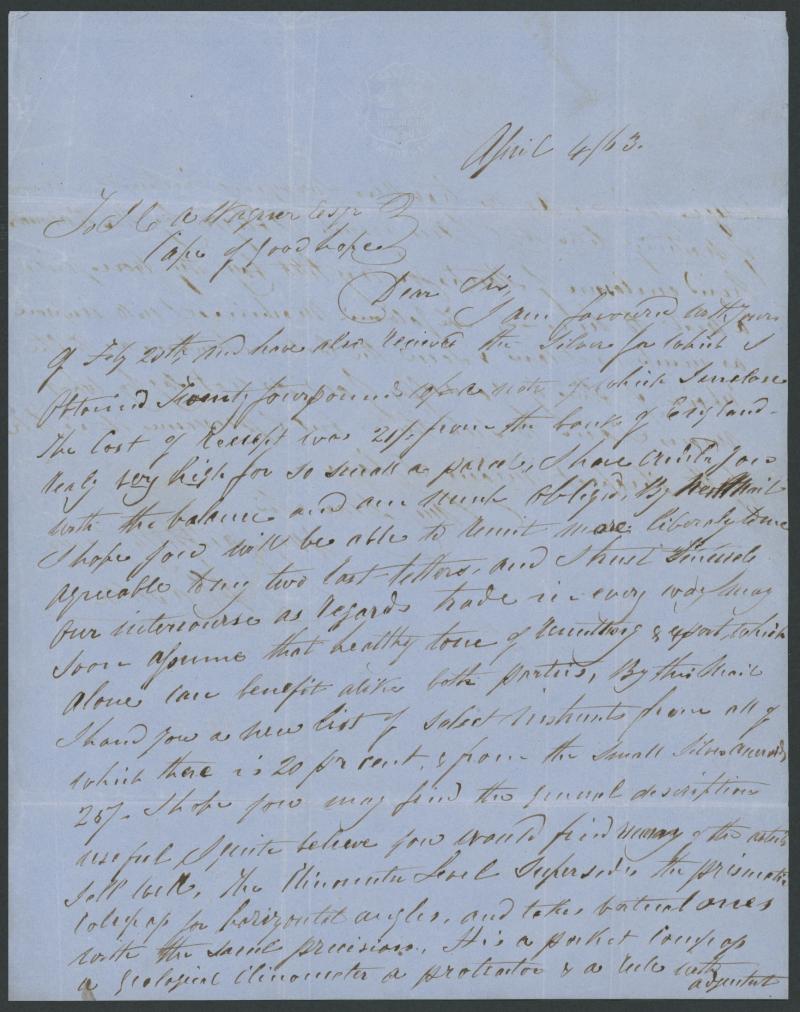 April 4/63.
To J C A Wagner Esqr
Cape of Good hope
Dear Sir,
I am favoured with yours
of Feby 20th, and have also received the Silver for which I
obtained Twenty four pounds a note of which I inclose
The Cost of Receipt was 21/- from the bank of England.
very high for so small a parcel, I have credited you
with the balance and am much obliged, By Next Mail
I hope you will be able to remit more liberaly to me
agreeable to my two last letters, and I trust
our intercourse as regards trade in every way may
soon assume that healthy tone of remitting & export, which
alone can benefit alike both parties, By this Mail
I hand you a new list of select Instruments from all of
which there is 20 pr cent, & from the small Silver aneroids
25/-. I hope you may find the general description
useful I quite believe you would find many of the articles
sell well, The Clinometer Level Supersedes the prismatic
Compass for horizontal angles, and takes vertical ones
with the same precision, It is a pocket compass
a geological Clinometer a protractor & a rule with
adjustment